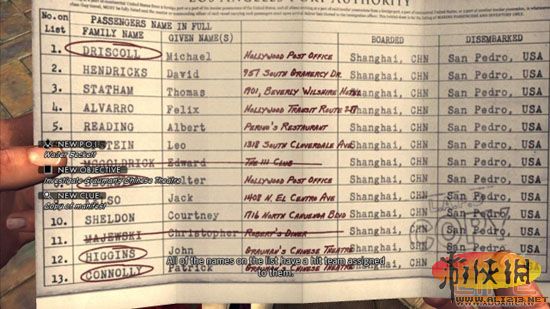 LOS ANGELES PORT AUTHORITY
No. on List PASSENGERS NAME IN FULL
FAMILY NAME GIVEN NAME(S) BOARDED DISEMBARKED
1. DRISCOLL Michael HOLLYWOOD POST OFFICE Shanghai, CHN San Pedro, USA
2. HENDRICKS David 957 SOUTH GRAMERCY DR. Shanghai, CHN San Pedro, USA
3. STATHAM Thomas 1901, BEVERLY WILSHIRE Shanghai, CHN San Pedro, USA
4. ALVARRO Felix HOLLYWOOD TRANSIT ROUTE Shanghai, CHN San Pedro, USA
5. READING Albert RESTAURANT Shanghai, CHN San Pedro, USA
TEIN Leo 1318 SOUTH CLOVERDALE AVE. Shanghai, CHN San Pedro, USA
MCGOLDRICK Edward THE 111 CLUB Shanghai, CHN San Pedro, USA
lter HOLLYWOOD POST OFFICE Shanghai, CHN San Pedro, USA
SO Jack 1408 N. EL CENTRO AVE Shanghai, CHN San Pedro, USA
10. SHELDON Courtney 1716 NORTH CAHUENGA BLVD Shanghai, CHN San Pedro, USA
11. MAJEWSKI Christopher ROBERT'S DINER Shanghai, CHN San Pedro, USA
12. HIGGINS John GRAUMAN'S CHINESE THEATRE Shanghai, CHN
13. CONNOLLY Patrick GRAUMAN'S CHINESE THEATRE Shanghai, CHN
NEW P.O.I.
NEW OBJECTIVE
Investigate Grauman's Chinese Theatre
NEW CLUE
Copy of manifest
All of the names on the list have a hit team assigned
to them.
游侠网
WWW.ALI213.NET